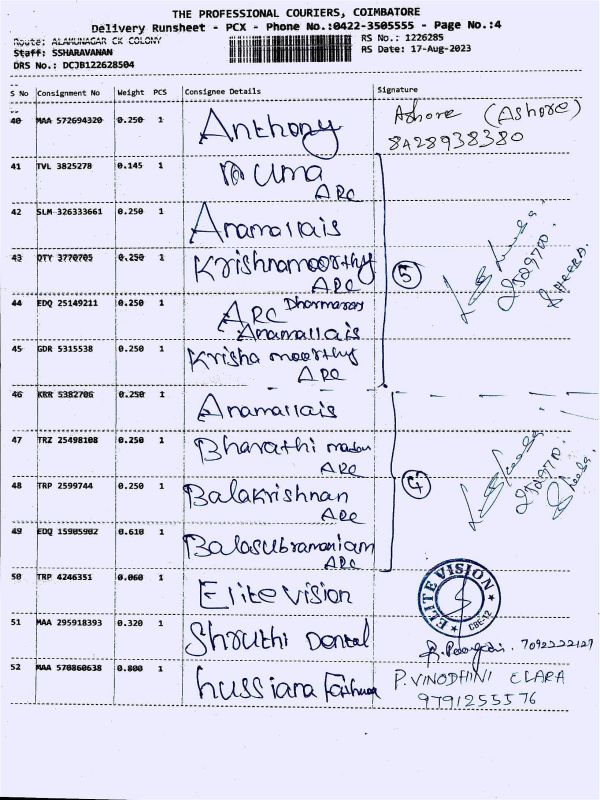 THE PROFESSIONAL COURIERS, COIMBATORE
Delivery Runsheet - PCX - Phone No.:0422-3505555 - Page No.:4
Route: ALAMUNAGAR CK COLONY
Staff: SSHARAVANAN
DRS No.: DCJB122628504
RS No.: 1226285
RS Date: 17-Aug-2023
S No Consignment No Weight PCS Consignee Details Signature
40 MAA 572694320 0.250 1 Anthony Ashore (Ashore)
8428938380
41 TVL 3825278 0.145 1 Uma
ARC
42 SLM-326333661 0.250 1 Anamallais
43 QTY 3770705 0.250 1 Krishnamoorthy
ARC
5
2529700
Sheeba
44 EDQ 25149211 0.250 1 ARC Dharmaraj
Anamallais
45 GDR 5315538 0.250 1 Krisha moorthy
ARC
46 KRR 5382706 0.250 1 Anamallais
47 TRZ 25498108 0.250 1 Bharathi madan
ARC
48 TRP 2599744 0.250 1 Balakrishnan
ARC
4
2529700
Sheeba
49 EDQ 15905902 0.610 1 Balasubramaniam
ARC
50 TRP 4246351 0.060 1 Elite vision
ELITE VISION
CBE-12
51 MAA 295918393 0.320 1 Shruthi Dental
7092222127
52 MAA 570860638 0.800 1 hussiana Fashion P.VINODHINI CLARA
9791255576